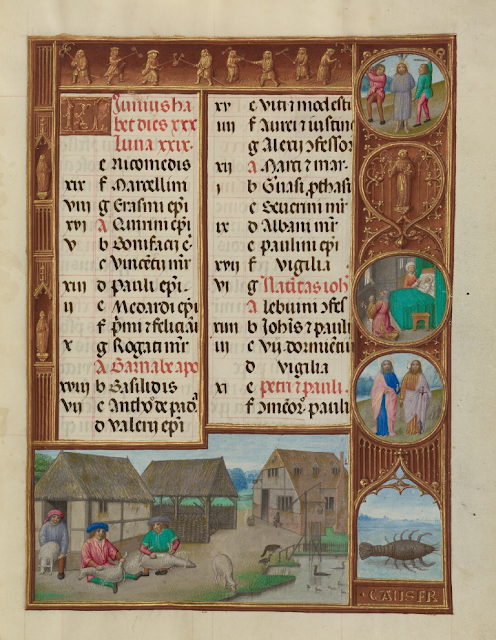 KL Junius ha
bet dies xxx
Luna xxix.
e Nicomedis
xix f Marcellini
viii g Erasmi epi
xvi A Quirini epi
v b Bonifacii e
c Vincetii mr
xiii d Pauli epi.
ii e Medardi epi
f Pmi z feliciani
x g Rogati mr
A Barnabe apo
xviii b Basilidis
vii c Antho de pad
d Valerii epi
xv e Viti z modesti
iiii f Aurei z iustine
g Alexii ofessor
xii A Marci z mar.
i b Gnasi pthasi
c Severini mr
ix d Albani mr
e Paulini epi
xvii f vigilia
vi g Natitas ioh
A lebuini ofes
xiiii b Johis z pauli
iii c Vii dormientiu
d vigilia
xi e Petri z pauli.
f pauli
CANSER